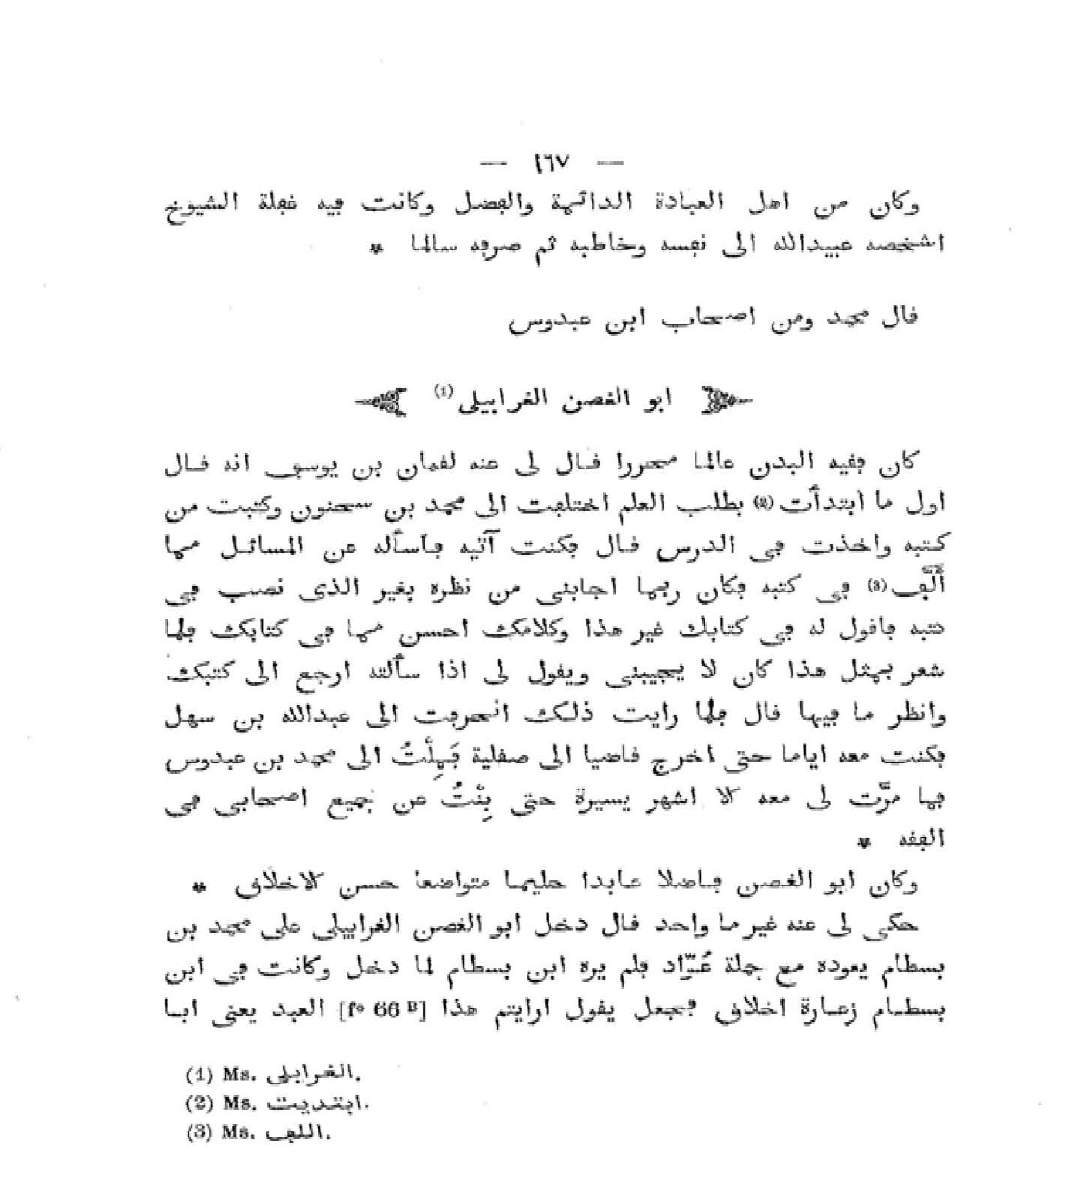 — ١٦٧ —
وكان من اهل العبادة الدائمة والفضل وكانت فيه غفلة الشيوخ
اشخصه عبيدالله الى نفسه وخاطبه ثم صرفه سالما *
قال محمد ومن اصحاب ابن عبدوس
ابو الغصن الغرابيلى (1)
كان فقيه البدن عالما محررا قال لى عنه لقمان بن يوسف انه قال
اول ما ابتدأت (2) بطلب العلم اختلفت الى محمد بن سحنون وكتبت من
كتبه واخذت فى الدرس قال فكنت آتيه فاسأله عن المسائل مما
أَلَّف (3) فى كتبه فكان ربما اجابنى من نظره بغير الذى نصب فى
كتبه فاقول له فى كتابك غير هذا وكلامك احسن مما فى كتابك فلما
شعر بمثل هذا كان لا يجيبنى ويقول لى اذا سألته ارجع الى كتبك
وانظر ما فيها قال فلما رايت ذلك انحرفت الى عبدالله بن سهل
فكنت معه اياما حتى اخرج قاضيا الى صقلية فَمِلْتُ الى محمد بن عبدوس
فما مرَّت لى معه الا اشهر يسيرة حتى بِنْتُ عن جميع اصحابى فى
الفقه *
وكان ابو الغصن فاضلا عابدا حليما متواضعا حسن الاخلاق *
حكى لى عنه غير ما واحد قال دخل ابو الغصن الغرابيلى على محمد بن
بسطام يعوده مع جملة عُوَّاد فلم يره ابن بسطام لما دخل وكانت فى ابن
بسطام زعارة اخلاق فجعل يقول ارايتم هذا [fº 66 B] العبد يعنى ابا
(1) Ms. الغرابلى.
(2) Ms. ابتديت.
(3) Ms. اللف.